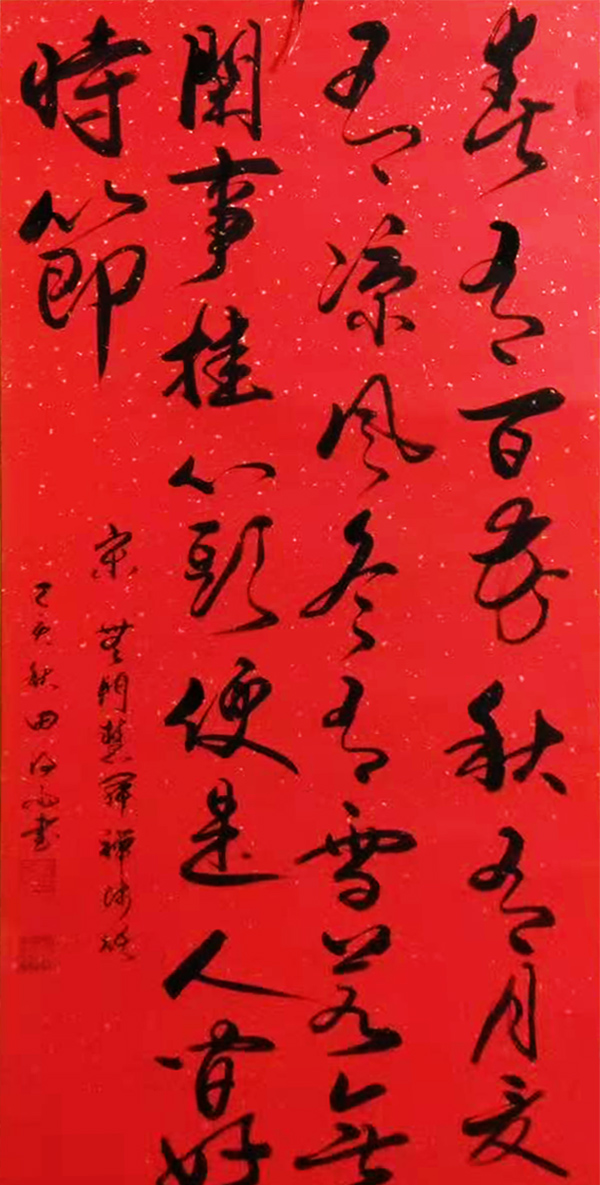 春有百花秋有月夏
有涼風冬有雪若無
閑事挂心頭便是人間好
時節
宋 無門慧開禪師
己亥秋田書